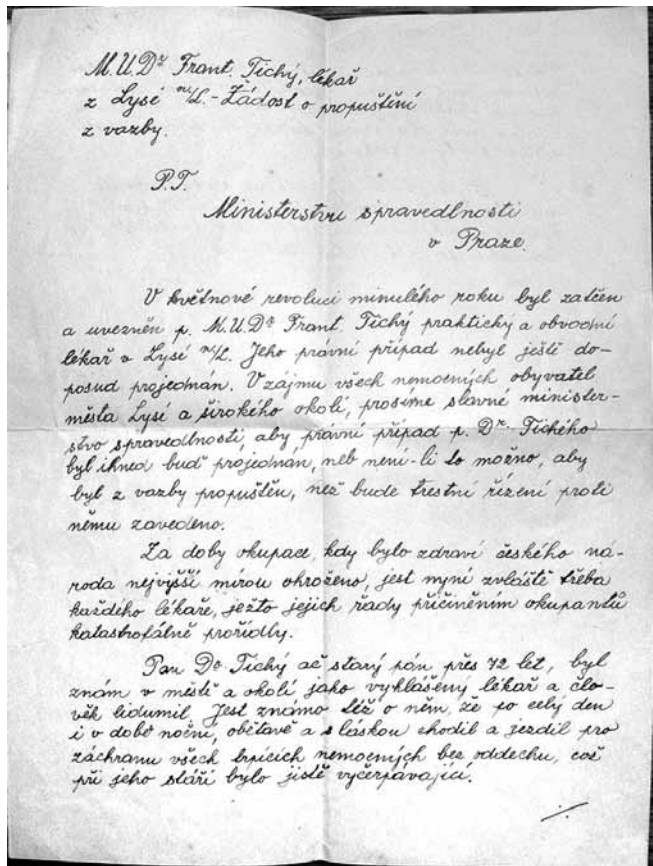 M.U.Dr Frant. Tichý, lékař
z Lysé n/L. - Žádost o propuštění
z vazby.
P.T.
Ministerstvu spravedlnosti
v Praze.
V květnové revoluci minulého roku byl zatčen
a uvezněn p. M.U.Dr Frant. Tichý praktický a obvodní
lékař v Lysé n/L. Jeho právní případ nebyl ještě do-
posud projednán. V zájmu všech nemocných obyvatel
města Lysé a širokého okolí, prosíme slavné minister-
stvo spravedlnosti, aby právní případ p. Dr. Tichého
byl ihned buď projednán, neb není-li to možno, aby
byl z vazby propuštěn, než bude trestní řízení proti
němu zavedeno.
Za doby okupace, kdy bylo zdraví českého ná-
roda nejvyšší mírou ohroženo, jest nyní zvláště třeba
každého lékaře, ježto jejich řady přičiněním okupantů
katastrofálně prořídly.
Pan Dr Tichý ač starý pán přes 72 let, byl
znám v městě a okolí jako vyhlášený lékař a člo-
věk lidumil. Jest známo též o něm, že po celý den
i v době noční, obětavě a s láskou chodil a jezdil pro
záchranu všech trpících nemocných bez oddechu, což
při jeho stáří bylo jistě vyčerpávající.
./.